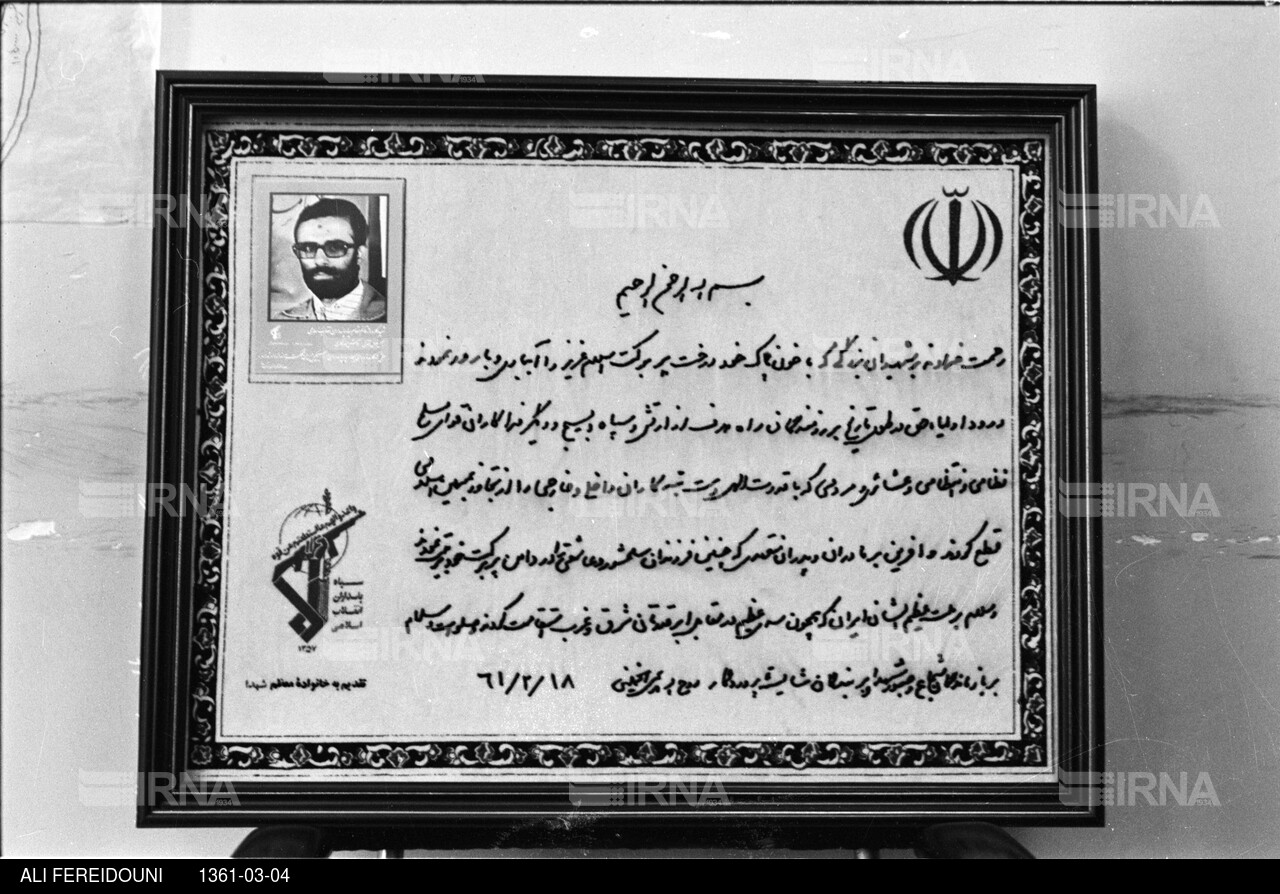 بسم الله الرحمن الرحیم
رحمت خداوند بر شهیدان بزرگی که با خون پاک خود درخت پر برکت اسلام عزیز را آبیاری و بارور نمودند
درود اولیاء حق در طول تاریخ بر رزمندگان راه هدف از ارتش و سپاه و بسیج و دیگر فداکاران قوای مسلح
نظامی و انتظامی و عشائری و مردمی که با قدرت الهی دست تبه‌کاران داخلی و خارجی را از تجاوز به میهن اسلامی
قطع کردند و آفرین بر مادران و پدران متعهدی که چنین فرزندان سلحشوری را در دامن پر برکت خود تربیت نمودند
و سلام بر ملت عظیم الشأن ایران که همچون سدی عظیم در مقابل ابرقدرتان شرق و غرب استقامت کردند و صلوات و سلام
بر بازماندگان شجاع و صبور شهدا و بر بندگان شایسته پروردگار روح الله الموسوی الخمینی ۶۱/۲/۱۸
سپاه
پاسداران
انقلاب
اسلامی
۱۳۵۷
تقدیم به خانوادهٔ معظم شهدا
IRNA
1934
ALI FEREIDOUNI 1361-03-04